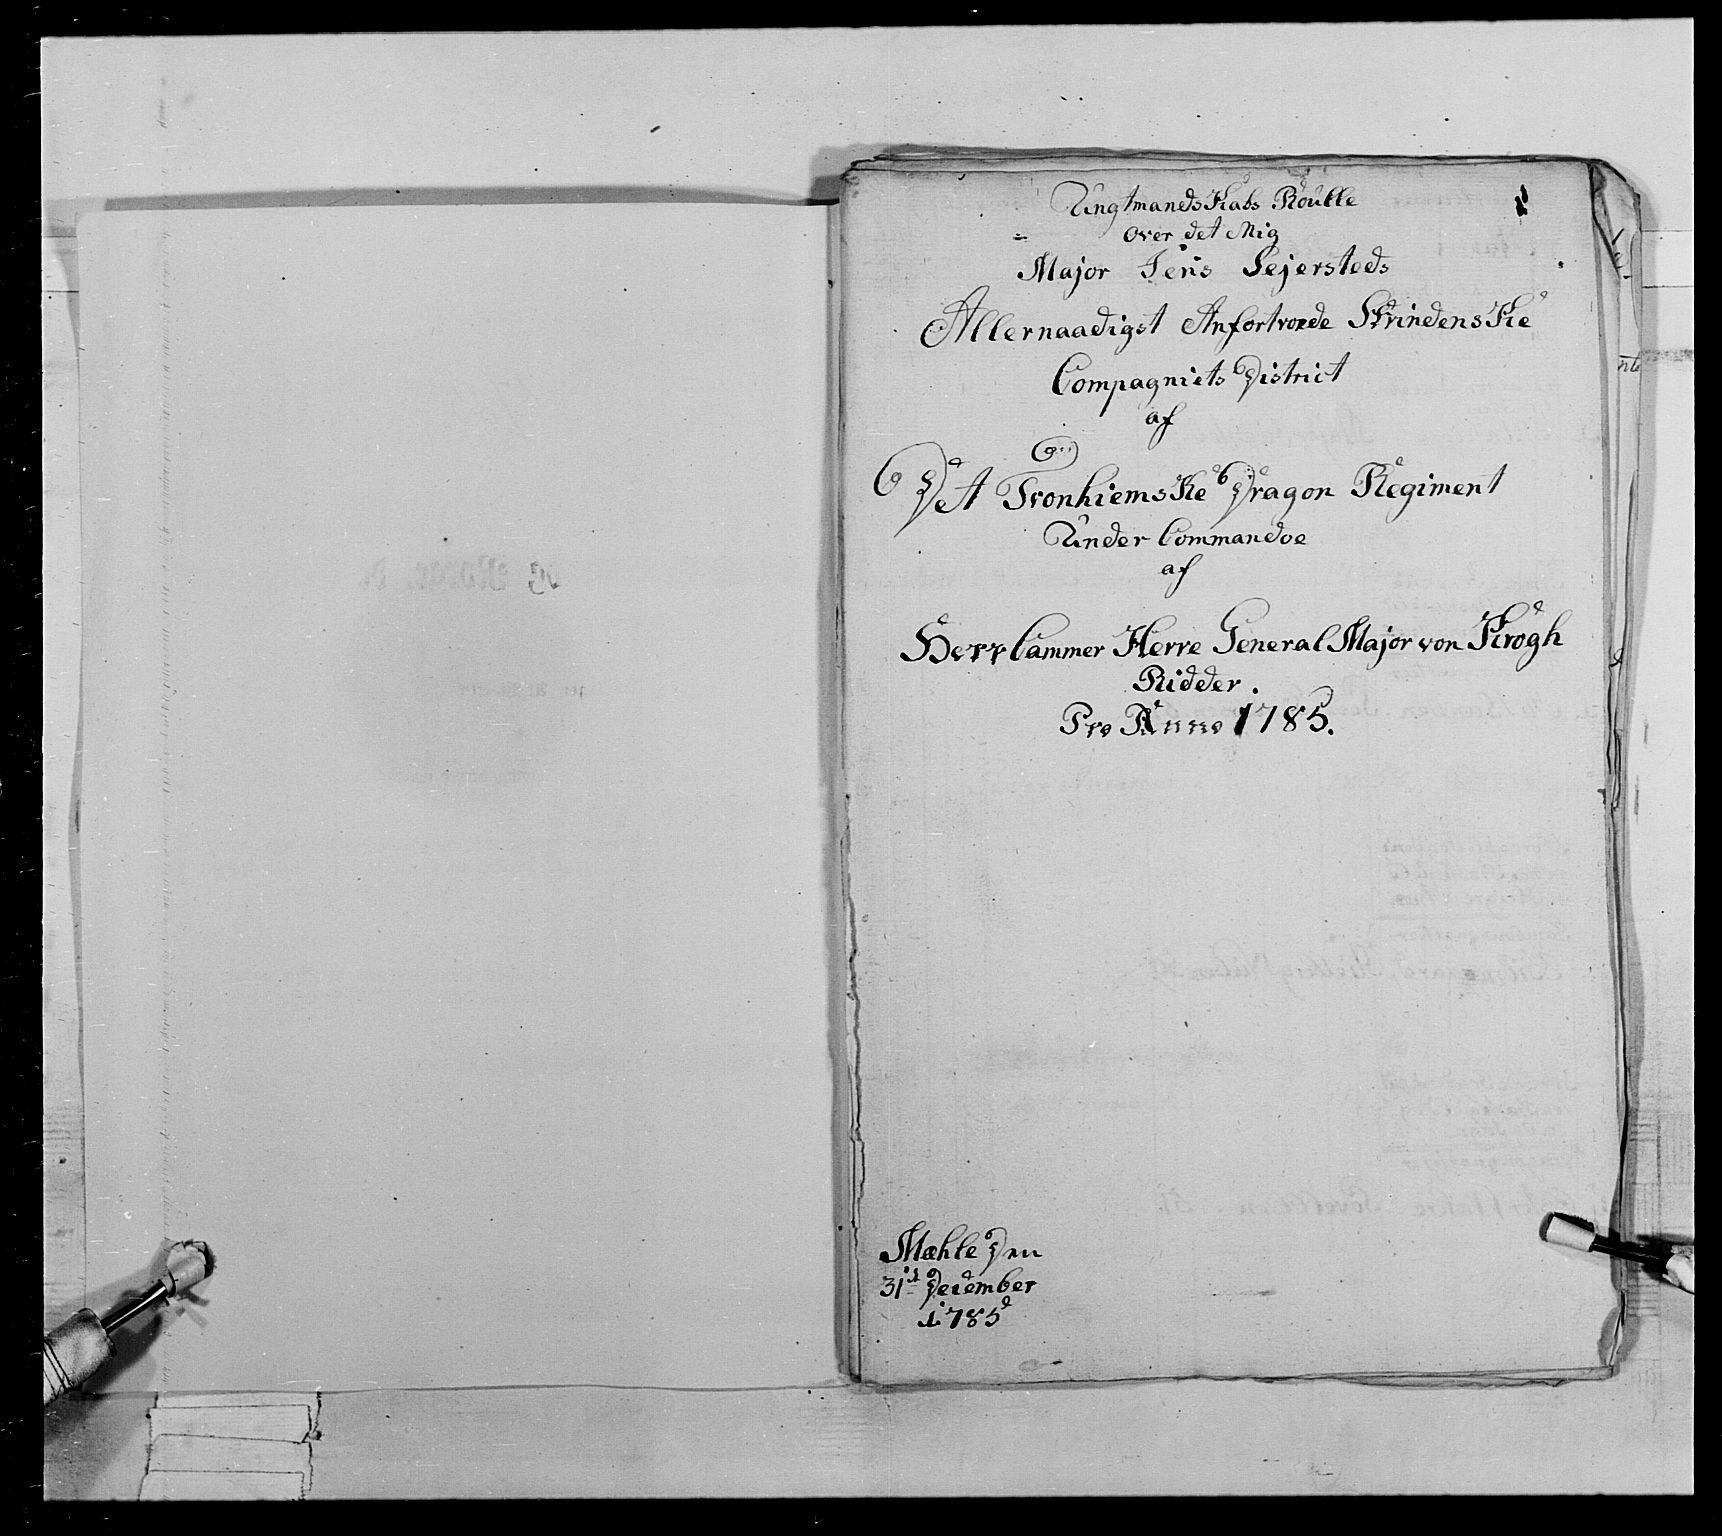 Ungtmandskabs Roulle
over det Mig
Major Jens Sejersteds
Allernaadigst Anfortroede Strindenske
Compagniets District
af
Det Tronhiemske Dragon Regiment
Under Commandoe
af
Herr Cammer Herre General Major von Krogh
Ridder.
Pro Anno 1785.
Mæhle Den
31t December
1785